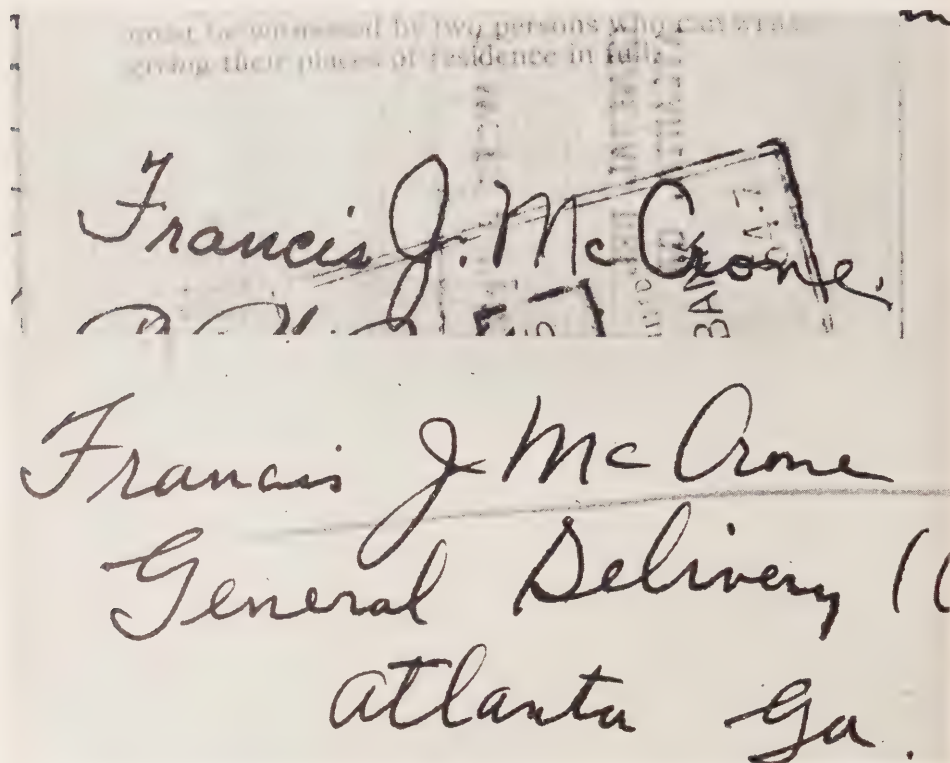 must be witnessed by two persons who can write
giving their places of residence in full.
Francis J. McCrone.
BAN
A-7
Francis J McCrone
General Delivery
Atlanta Ga.